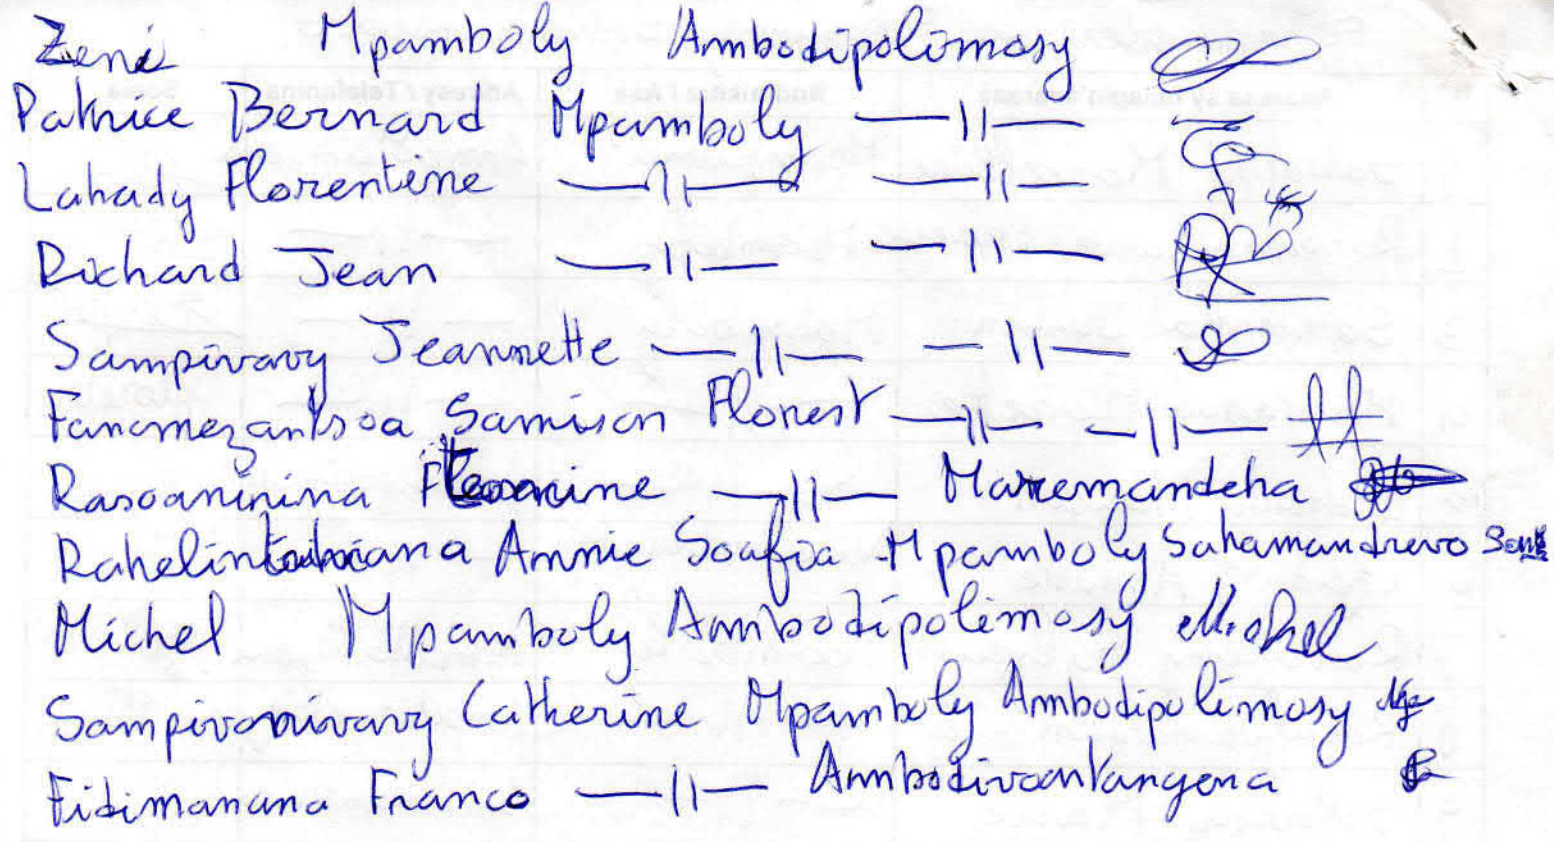 Zené Mpamboly Ambodipolimosy
Patrice Bernard Mpamboly —||—
Lahady Florentine —||— —||—
Richard Jean —||— —||—
Sampivavy Jeannette —||— —||—
Fanomezantsoa Samison Florest —||— —||—
Rasoaninina —||— Maremandeha
Annie Soafia Mpamboly Sahamandrevo
Michel Mpamboly Ambodipolimosy Michel
Catherine Mpamboly Ambodipolimosy
Fidimanana Franco —||— Ambodivoantangena